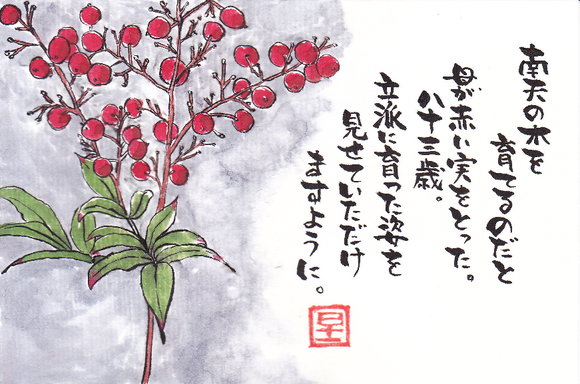 南天の木を
育てるのだと
母が赤い実をとった。
八十三歳。
立派に育った姿を
見せていただけ
ますように。